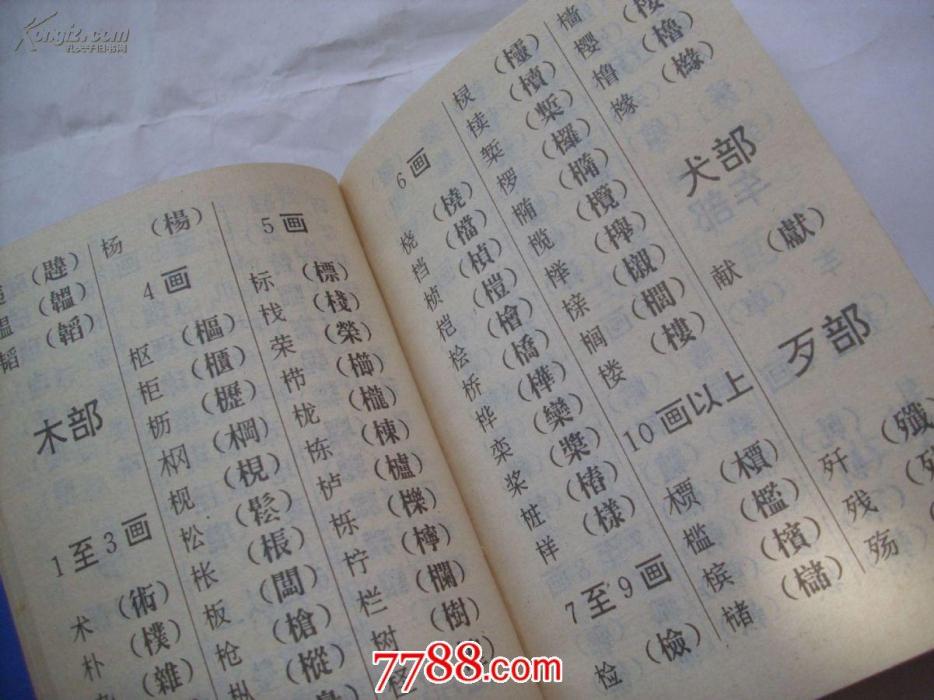 Kongfz.com
孔夫子旧书网
韪（韙）
韫（韞）
韬（韜）
木部
1至3画
术（術）
朴（樸）
（雜）
杨（楊）
4画
枢（樞）
柜（櫃）
枥（櫪）
㭎（棡）
枧（梘）
松（鬆）
枨（棖）
板（闆）
枪（槍）
枞（樅）
5画
标（標）
栈（棧）
荣（榮）
栉（櫛）
栊（櫳）
栋（棟）
栌（櫨）
栎（櫟）
柠（檸）
栏（欄）
树（樹）
6画
桡（橈）
档（檔）
桢（楨）
桤（榿）
桧（檜）
桥（橋）
桦（樺）
栾（欒）
桨（槳）
桩（樁）
样（樣）
7至9画
检（檢）
棂（欞）
椟（櫝）
椠（槧）
椤（欏）
椭（橢）
榄（欖）
榉（櫸）
榇（櫬）
榈（櫚）
楼（樓）
10画以上
槚（檟）
槛（檻）
槟（檳）
槠（櫧）
樯
樱（櫻）
橹（櫓）
橼（櫞）
犬部
献（獻）
歹部
歼（殲）
残
殇
7788.com